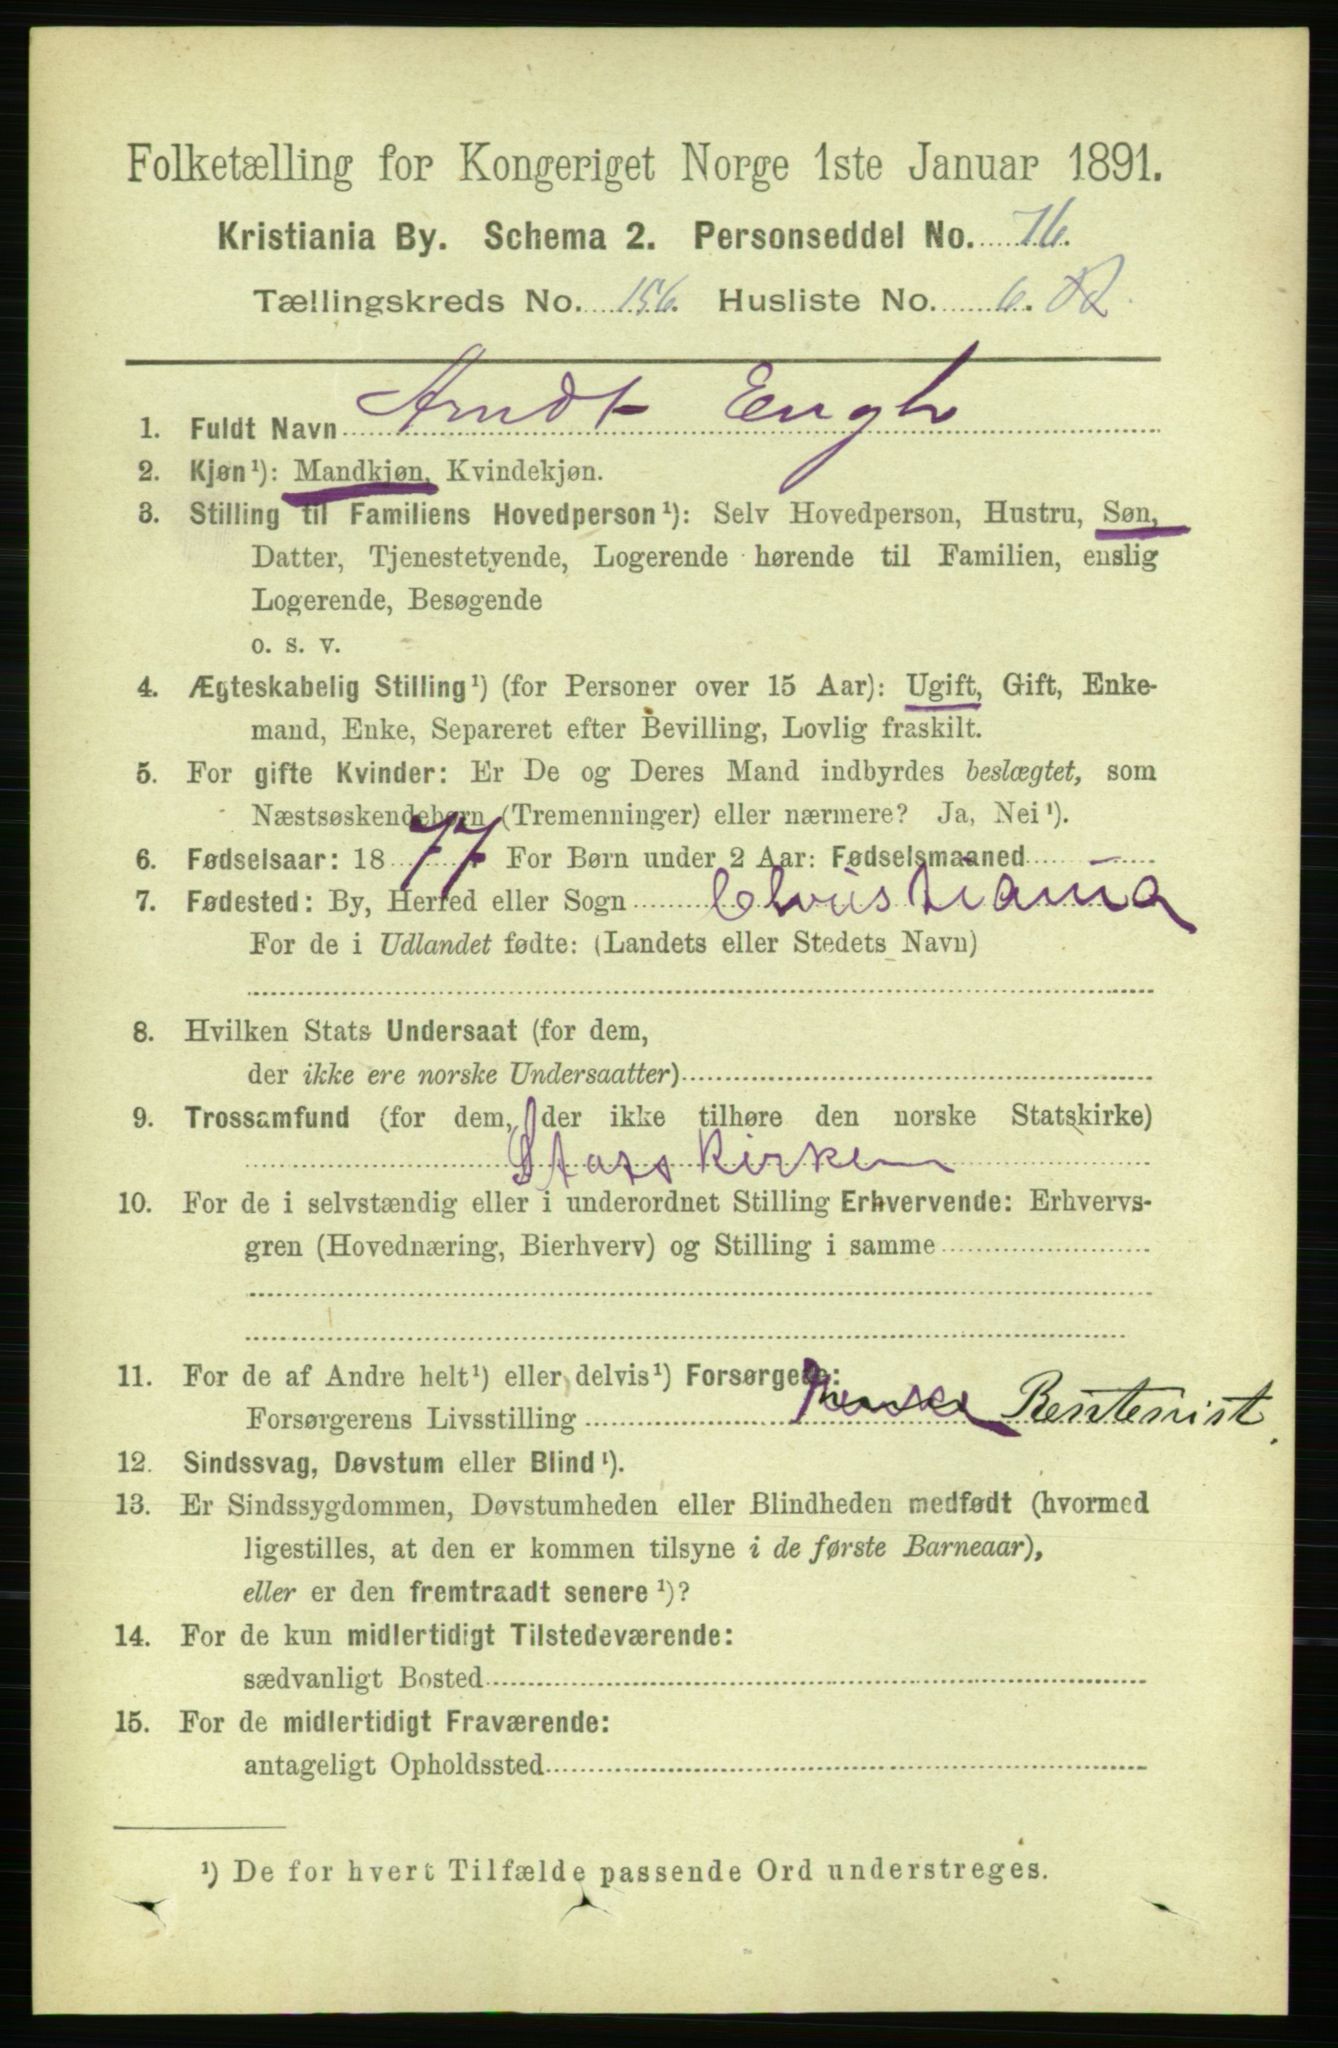 Folketælling for Kongeriget Norge 1ste Januar 1891.
Kristiania By. Schema 2. Personseddel No. 76.
Tællingskreds No. 156. Husliste No. 6.
1. Fuldt Navn Arndt Engh
2. Kjøn¹): Mandkjøn, Kvindekjøn.
3. Stilling til Familiens Hovedperson¹): Selv Hovedperson, Hustru, Søn,
Datter, Tjenestetyende, Logerende hørende til Familien, enslig
Logerende, Besøgende
o. s. v.
4. Ægteskabelig Stilling¹) (for Personer over 15 Aar): Ugift, Gift, Enke-
mand, Enke, Separeret efter Bevilling, Lovlig fraskilt.
5. For gifte Kvinder: Er De og Deres Mand indbyrdes beslægtet, som
Næstsøskendebørn (Tremenninger) eller nærmere? Ja, Nei¹).
6. Fødselsaar: 1877 For Børn under 2 Aar: Fødselsmaaned
7. Fødested: By, Herred eller Sogn Christiania
For de i Udlandet fødte: (Landets eller Stedets Navn)
8. Hvilken Stats Undersaat (for dem,
der ikke ere norske Undersaatter)
9. Trossamfund (for dem, der ikke tilhøre den norske Statskirke)
Statskirken
10. For de i selvstændig eller i underordnet Stilling Erhvervende: Erhvervs-
gren (Hovednæring, Bierhverv) og Stilling i samme
11. For de af Andre helt¹) eller delvis¹) Forsørgede:
Forsørgerens Livsstilling Rentenist.
12. Sindssvag, Døvstum eller Blind¹).
13. Er Sindssygdommen, Døvstumheden eller Blindheden medfødt (hvormed
ligestilles, at den er kommen tilsyne i de første Barneaar),
eller er den fremtraadt senere¹)?
14. For de kun midlertidigt Tilstedeværende:
sædvanligt Bosted
15. For de midlertidigt Fraværende:
antageligt Opholdssted
¹) De for hvert Tilfælde passende Ord understreges.